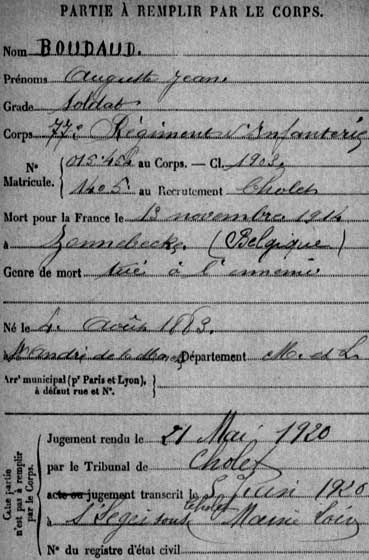 PARTIE À REMPLIR PAR LE CORPS.
Nom BOUDAUD.
Prénoms Auguste Jean
Grade Soldat
Corps 77e Régiment d'Infanterie
N° Matricule. { 01545 au Corps. — Cl. 1903.
1405 au Recrutement Cholet
Mort pour la France le 13 novembre 1914
à Zonnebecke (Belgique)
Genre de mort tué à l'ennemi
Né le 4 Août 1883.
St André de la Marche Département M. et L.
Arrt municipal (pr Paris et Lyon),
à défaut rue et N°.
Cette partie n'est pas à remplir par le Corps.
Jugement rendu le 21 Mai 1920
par le Tribunal de Cholet
acte ou jugement transcrit le 1920
à sous Cholet Maine Loire
N° du registre d'état civil